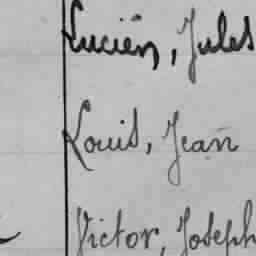 Lucien, Jules
Louis, Jean
Victor, Joseph